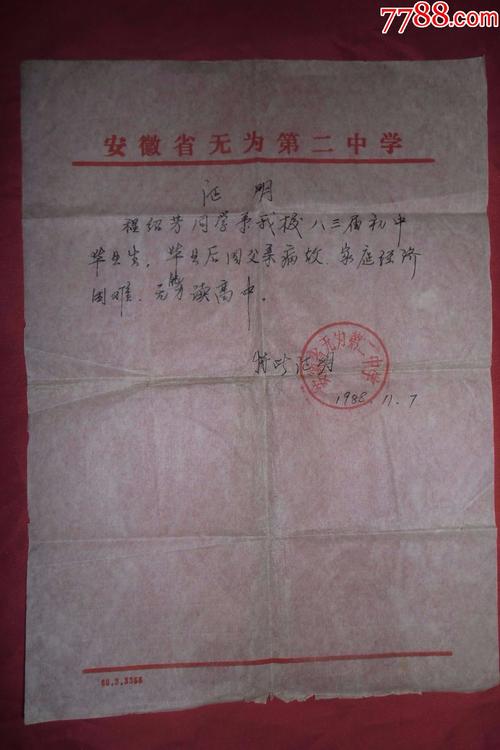 7788.com
安徽省无为第二中学
证明
程绍芳同学系我校八三届初中
毕业生,毕业后因父亲病故,家庭经济
困难,无力读高中。
特此证明
安徽省无为第二中学
1988.11.7